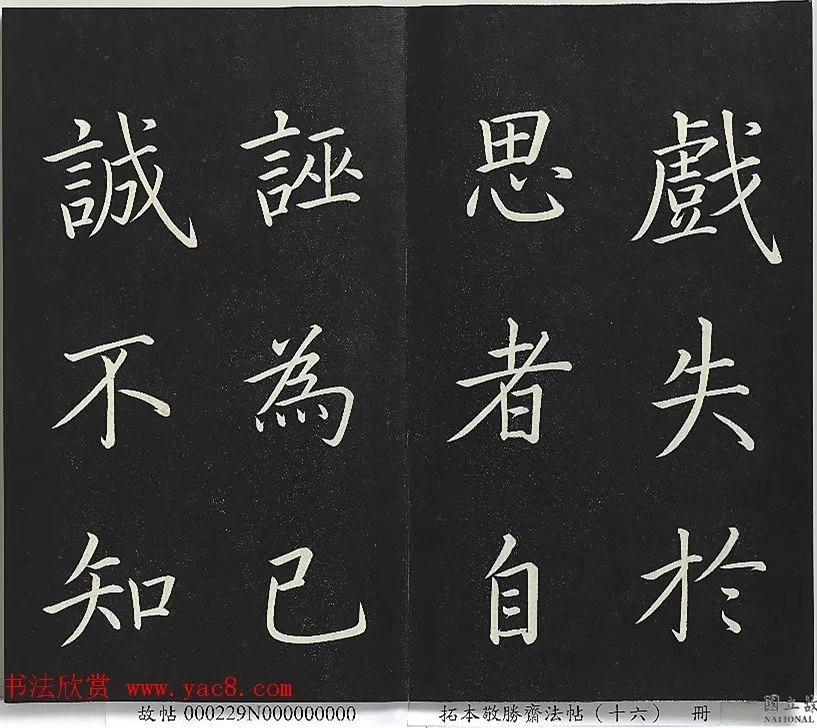 戲失於
思者自
誣為己
誠不知
书法欣赏 www.yac8.com
故帖 000229N000000000
拓本敬勝齋法帖（十六） 冊
國立故
NATIONAL